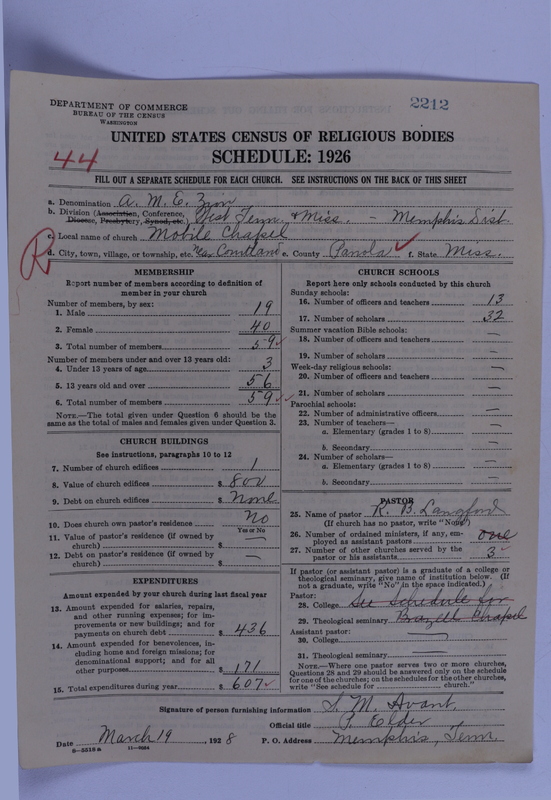 2212
DEPARTMENT OF COMMERCE
BUREAU OF THE CENSUS
WASHINGTON
UNITED STATES CENSUS OF RELIGIOUS BODIES
44
SCHEDULE: 1926
FILL OUT A SEPARATE SCHEDULE FOR EACH CHURCH. SEE INSTRUCTIONS ON THE BACK OF THIS SHEET
a. Denomination A. M. E. Zion
b. Division (Association, Conference, Diocese, Presbytery, Synod, etc.) West Tenn. & Miss. - Memphis Dist.
c. Local name of church Mobile Chapel
R
d. City, town, village, or township, etc. Near Courtland e. County Panola ✓ f. State Miss.
MEMBERSHIP
Report number of members according to definition of
member in your church
Number of members, by sex:
1. Male 19
2. Female 40
3. Total number of members 59 ✓
Number of members under and over 13 years old:
4. Under 13 years of age 3
5. 13 years old and over 56
6. Total number of members 59 ✓✓
NOTE.—The total given under Question 6 should be
the same as the total of males and females given under Question 3.
CHURCH BUILDINGS
See instructions, paragraphs 10 to 12
7. Number of church edifices 1
8. Value of church edifices $ 800
9. Debt on church edifices $ None
10. Does church own pastor's residence No
Yes or No
11. Value of pastor's residence (if owned by
church) $ —
12. Debt on pastor's residence (if owned by
church) $ —
EXPENDITURES
Amount expended by your church during last fiscal year
13. Amount expended for salaries, repairs,
and other running expenses; for im-
provements or new buildings; and for
payments on church debt $ 436
14. Amount expended for benevolences, in-
cluding home and foreign missions; for
denominational support; and for all
other purposes $ 171
15. Total expenditures during year $ 607 ✓
CHURCH SCHOOLS
Report here only schools conducted by this church
Sunday schools:
16. Number of officers and teachers 13
17. Number of scholars 32
Summer vacation Bible schools:
18. Number of officers and teachers —
19. Number of scholars —
Week-day religious schools:
20. Number of officers and teachers —
21. Number of scholars —
Parochial schools:
22. Number of administrative officers —
23. Number of teachers—
a. Elementary (grades 1 to 8) —
b. Secondary —
24. Number of scholars—
a. Elementary (grades 1 to 8) —
b. Secondary —
PASTOR
25. Name of pastor R. B. Langford
(If church has no pastor, write "None")
26. Number of ordained ministers, if any, em-
ployed as assistant pastors one
27. Number of other churches served by the
pastor or his assistants 3 ✓
If pastor (or assistant pastor) is a graduate of a college or
theological seminary, give name of institution below. (If
not a graduate, write "No" in the space indicated.)
Pastor:
28. College See schedule for
29. Theological seminary Brazell Chapel
Assistant pastor:
30. College —
31. Theological seminary —
NOTE.—Where one pastor serves two or more churches,
Questions 28 and 29 should be answered only on the schedule
for one of the churches; on the schedules for the other churches,
write "See schedule for ______ church."
Signature of person furnishing information S. M. Avant,
Official title P. Elder
Date March 19, 1928 P. O. Address Memphis, Tenn.
8-5513a 11-9894